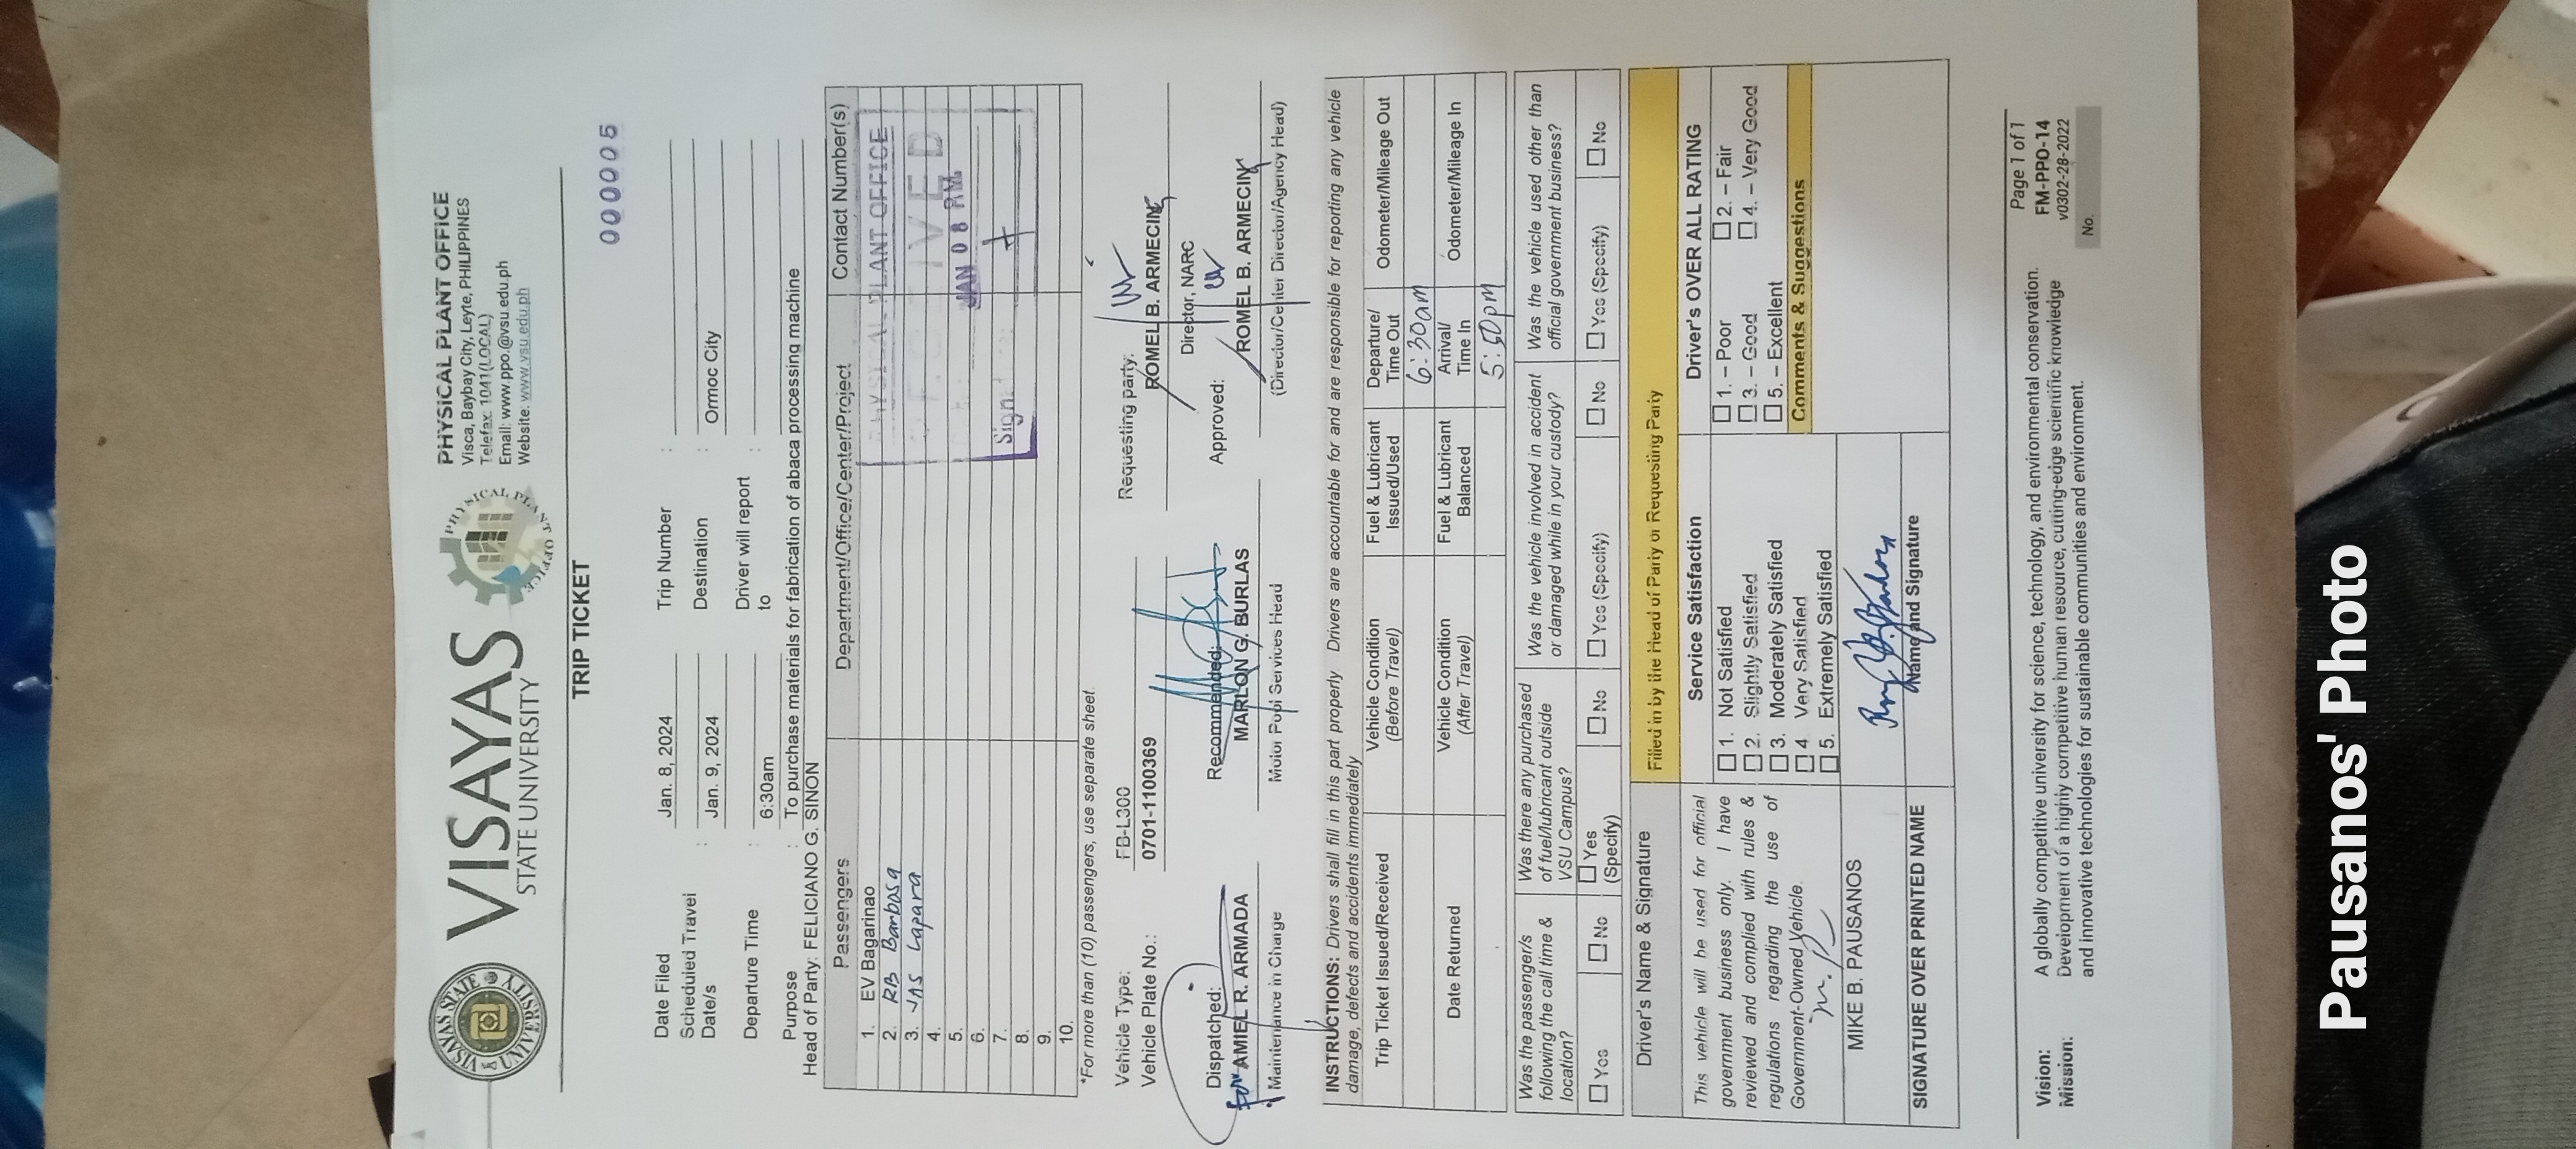 VISAYAS
STATE UNIVERSITY
PHYSICAL PLANT OFFICE
Visca, Baybay City, Leyte, PHILIPPINES
Telefax: 1041(LOCAL)
Email: www.ppo.@vsu.edu.ph
Website: www.vsu.edu.ph
TRIP TICKET
000005
Date Filed Jan. 8, 2024 Trip Number :
Scheduled Travel Date/s : Jan. 9, 2024 Destination : Ormoc City
Departure Time : 6:30am Driver will report to :
Purpose : To purchase materials for fabrication of abaca processing machine
Head of Party: FELICIANO G. SINON
Passengers Department/Office/Center/Project Contact Number(s)
1. EV Bagarinao
2. RB Barbosa
3. JAS Lapara
4.
5.
6.
7.
8.
9.
10.
PHYSICAL PLANT OFFICE
JAN 08
Sign
*For more than (10) passengers, use separate sheet.
Vehicle Type: FB-L300
Vehicle Plate No.: 0701-1100369
Requesting party:
ROMEL B. ARMECIN
Director, NARC
Dispatched: Recommended: Approved:
for AMIEL R. ARMADA MARLON G. BURLAS ROMEL B. ARMECIN
Maintenance in Charge Motor Pool Services Head (Director/Center Director/Agency Head)
INSTRUCTIONS: Drivers shall fill in this part properly. Drivers are accountable for and are responsible for reporting any vehicle
damage, defects and accidents immediately
Trip Ticket Issued/Received Vehicle Condition (Before Travel) Fuel & Lubricant Issued/Used Departure/ Time Out Odometer/Mileage Out
6:30am
Date Returned Vehicle Condition (After Travel) Fuel & Lubricant Balanced Arrival/ Time In Odometer/Mileage In
Was the passenger/s following the call time & location? Was there any purchased of fuel/lubricant outside VSU Campus? Was the vehicle involved in accident or damaged while in your custody? Was the vehicle used other than official government business?
Yes No Yes (Specify) No Yes (Specify) No Yes (Specify) No
Driver's Name & Signature
Filled in by the Head of Party or Requesting Party
This vehicle will be used for official
government business only. I have
reviewed and complied with rules &
regulations regarding the use of
Government-Owned Vehicle.
MIKE B. PAUSANOS
SIGNATURE OVER PRINTED NAME
Service Satisfaction
1. Not Satisfied
2. Slightly Satisfied
3. Moderately Satisfied
4 Very Satisfied
5. Extremely Satisfied
Name and Signature
Driver's OVER ALL RATING
1. – Poor 2. – Fair
3. – Good 4. – Very Good
5. – Excellent
Comments & Suggestions
Vision: A globally competitive university for science, technology, and environmental conservation.
Mission: Development of a highly competitive human resource, cutting-edge scientific knowledge
and innovative technologies for sustainable communities and environment.
Page 1 of 1
FM-PPO-14
v0302-28-2022
No.
Pausanos' Photo